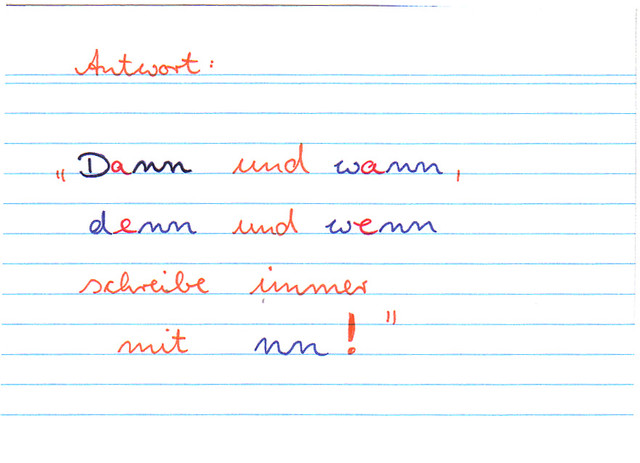 Antwort:
„Dann und wann,
denn und wenn
schreibe immer
mit nn!"